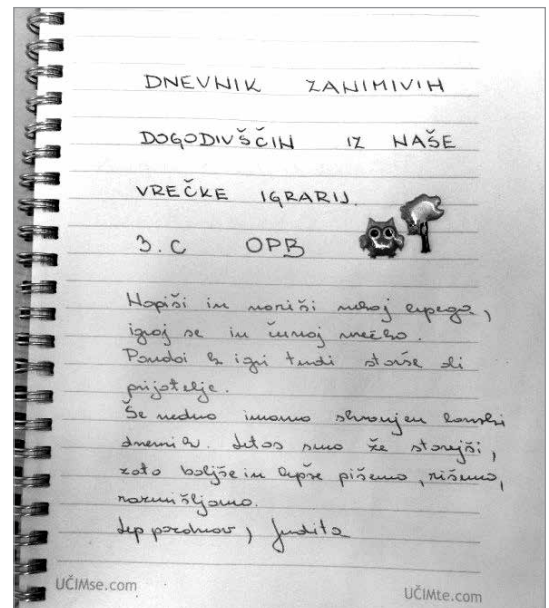 DNEVNIK ZANIMIVIH
DOGODIVŠČIN IZ NAŠE
VREČKE IGRARIJ.
3.C OPB
Napiši in nariši nekaj lepega,
igraj se in čuvaj vrečko.
Povabi k igri tudi starše ali
prijatelje.
Še vedno imamo shranjen lanski
dnevnik. Letos smo že starejši,
zato boljše in lepše pišemo, rišemo,
razmišljamo.
Lep pozdrav, Judita
UČIMse.com
UČIMte.com